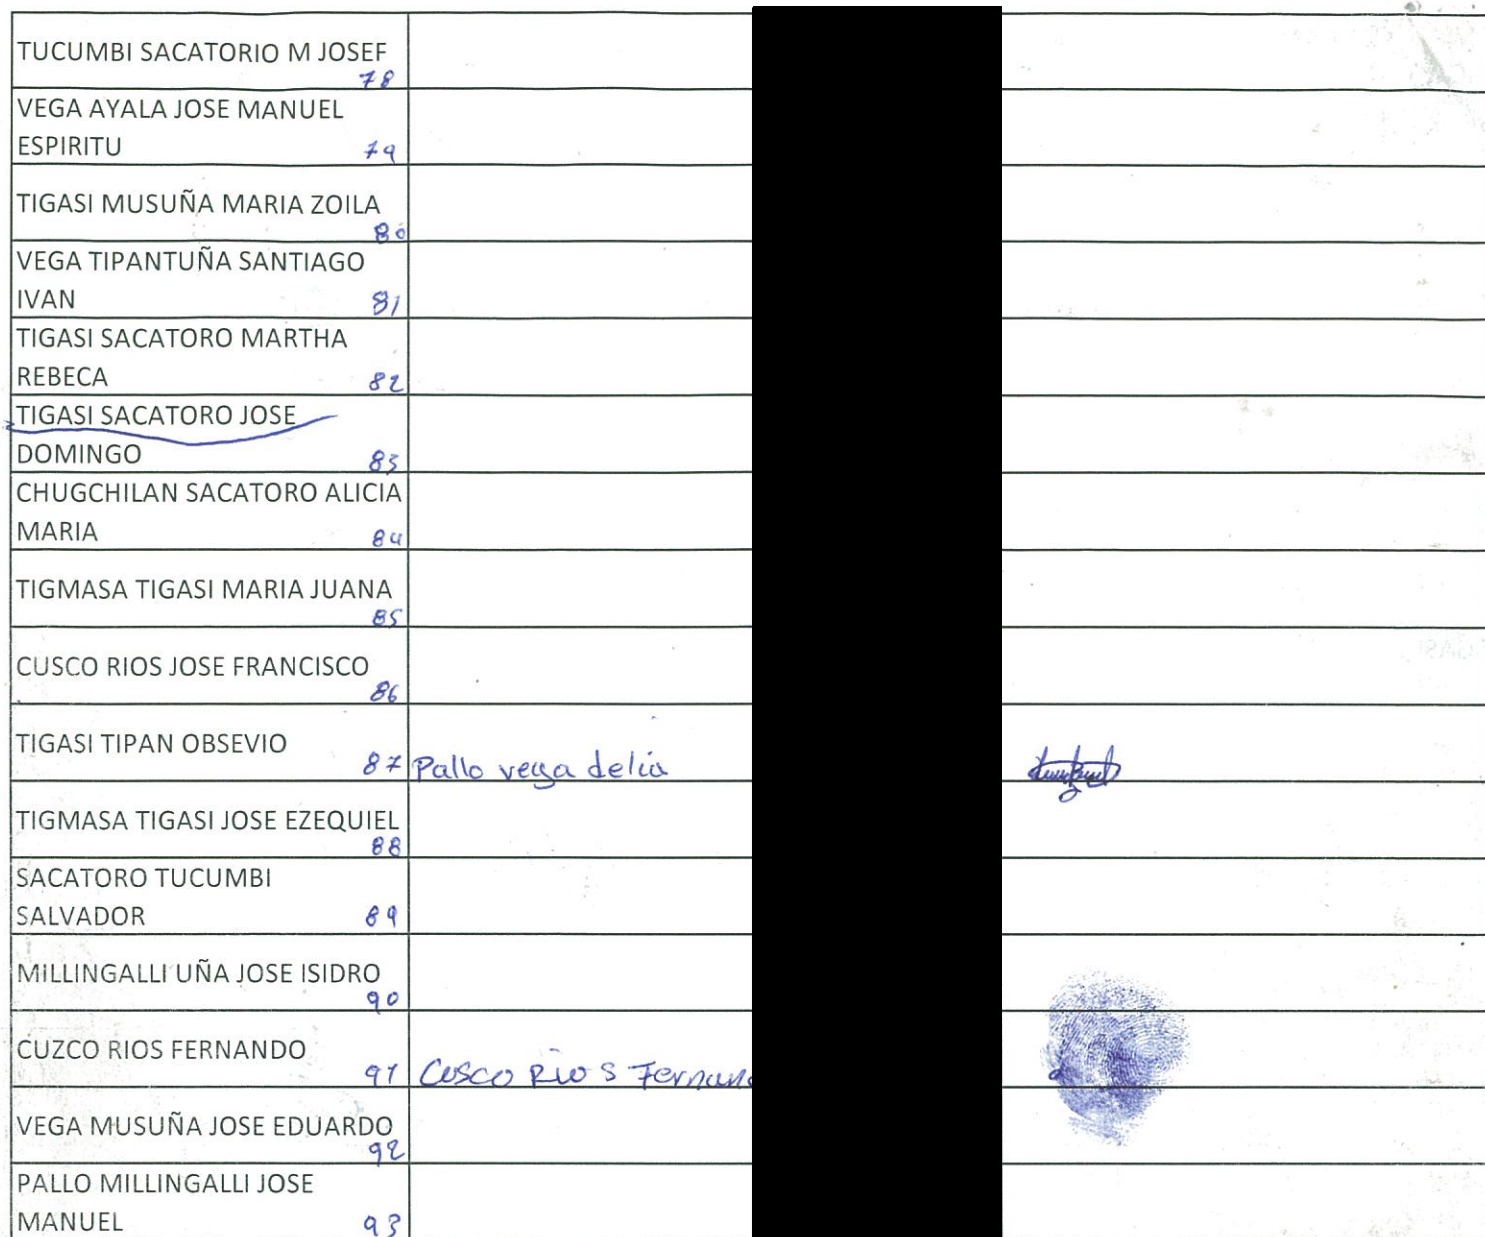 TUCUMBI SACATORIO M JOSEF
78
VEGA AYALA JOSE MANUEL
ESPIRITU 79
TIGASI MUSUÑA MARIA ZOILA
80
VEGA TIPANTUÑA SANTIAGO
IVAN 81
TIGASI SACATORO MARTHA
REBECA 82
TIGASI SACATORO JOSE
DOMINGO 83
CHUGCHILAN SACATORO ALICIA
MARIA 84
TIGMASA TIGASI MARIA JUANA
85
CUSCO RIOS JOSE FRANCISCO
86
TIGASI TIPAN OBSEVIO
87 Pallo vega delia
TIGMASA TIGASI JOSE EZEQUIEL
88
SACATORO TUCUMBI
SALVADOR 89
MILLINGALLI UÑA JOSE ISIDRO
90
CUZCO RIOS FERNANDO
91 Cusco Rios Fernan
VEGA MUSUÑA JOSE EDUARDO
92
PALLO MILLINGALLI JOSE
MANUEL 93